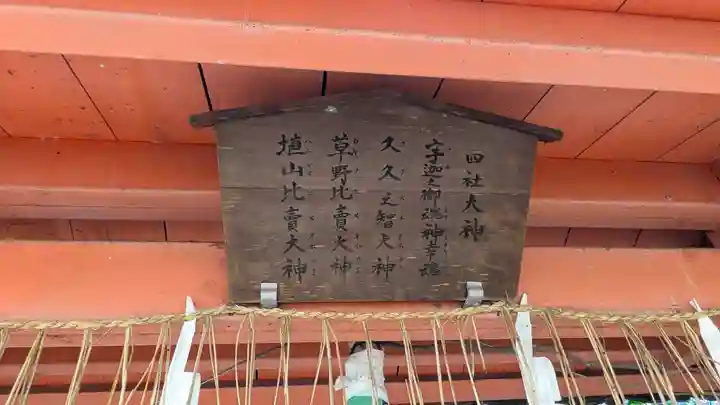 四社大神
宇迦之御魂神幸魂
久久之智大神
草野比賣大神
埴山比賣大神